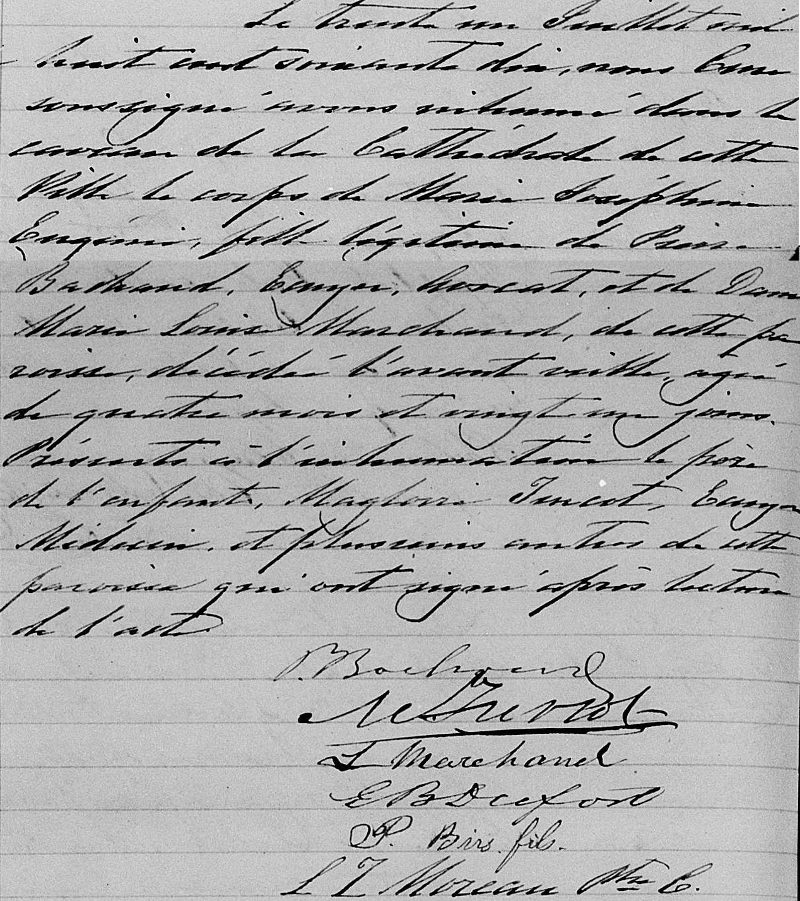 Le trente un Juillet mil
huit cent soixante dix, nous Curé
soussigné avons inhumé dans le
caveau de la Cathédrale de cette
Ville le corps de Marie Joséphine
Eugénie, fille légitime de Pierre
Bachand, Ecuyer, Avocat, et de Dame
Marie Louise Marchand, de cette pa
roisse, décédée l'avant veille, agée
de quatre mois et vingt un jours.
Présents à l'inhumation le père
de l'enfant, Magloire Turcot, Ecuyer
Médecin, et plusieurs autres de cette
paroisse qui ont signé après lecture
de l'acte
P. Bachand
M Turcot
L Marchand
E B Dufort
P. Birs. fils.
L Z Moreau Ptre C.